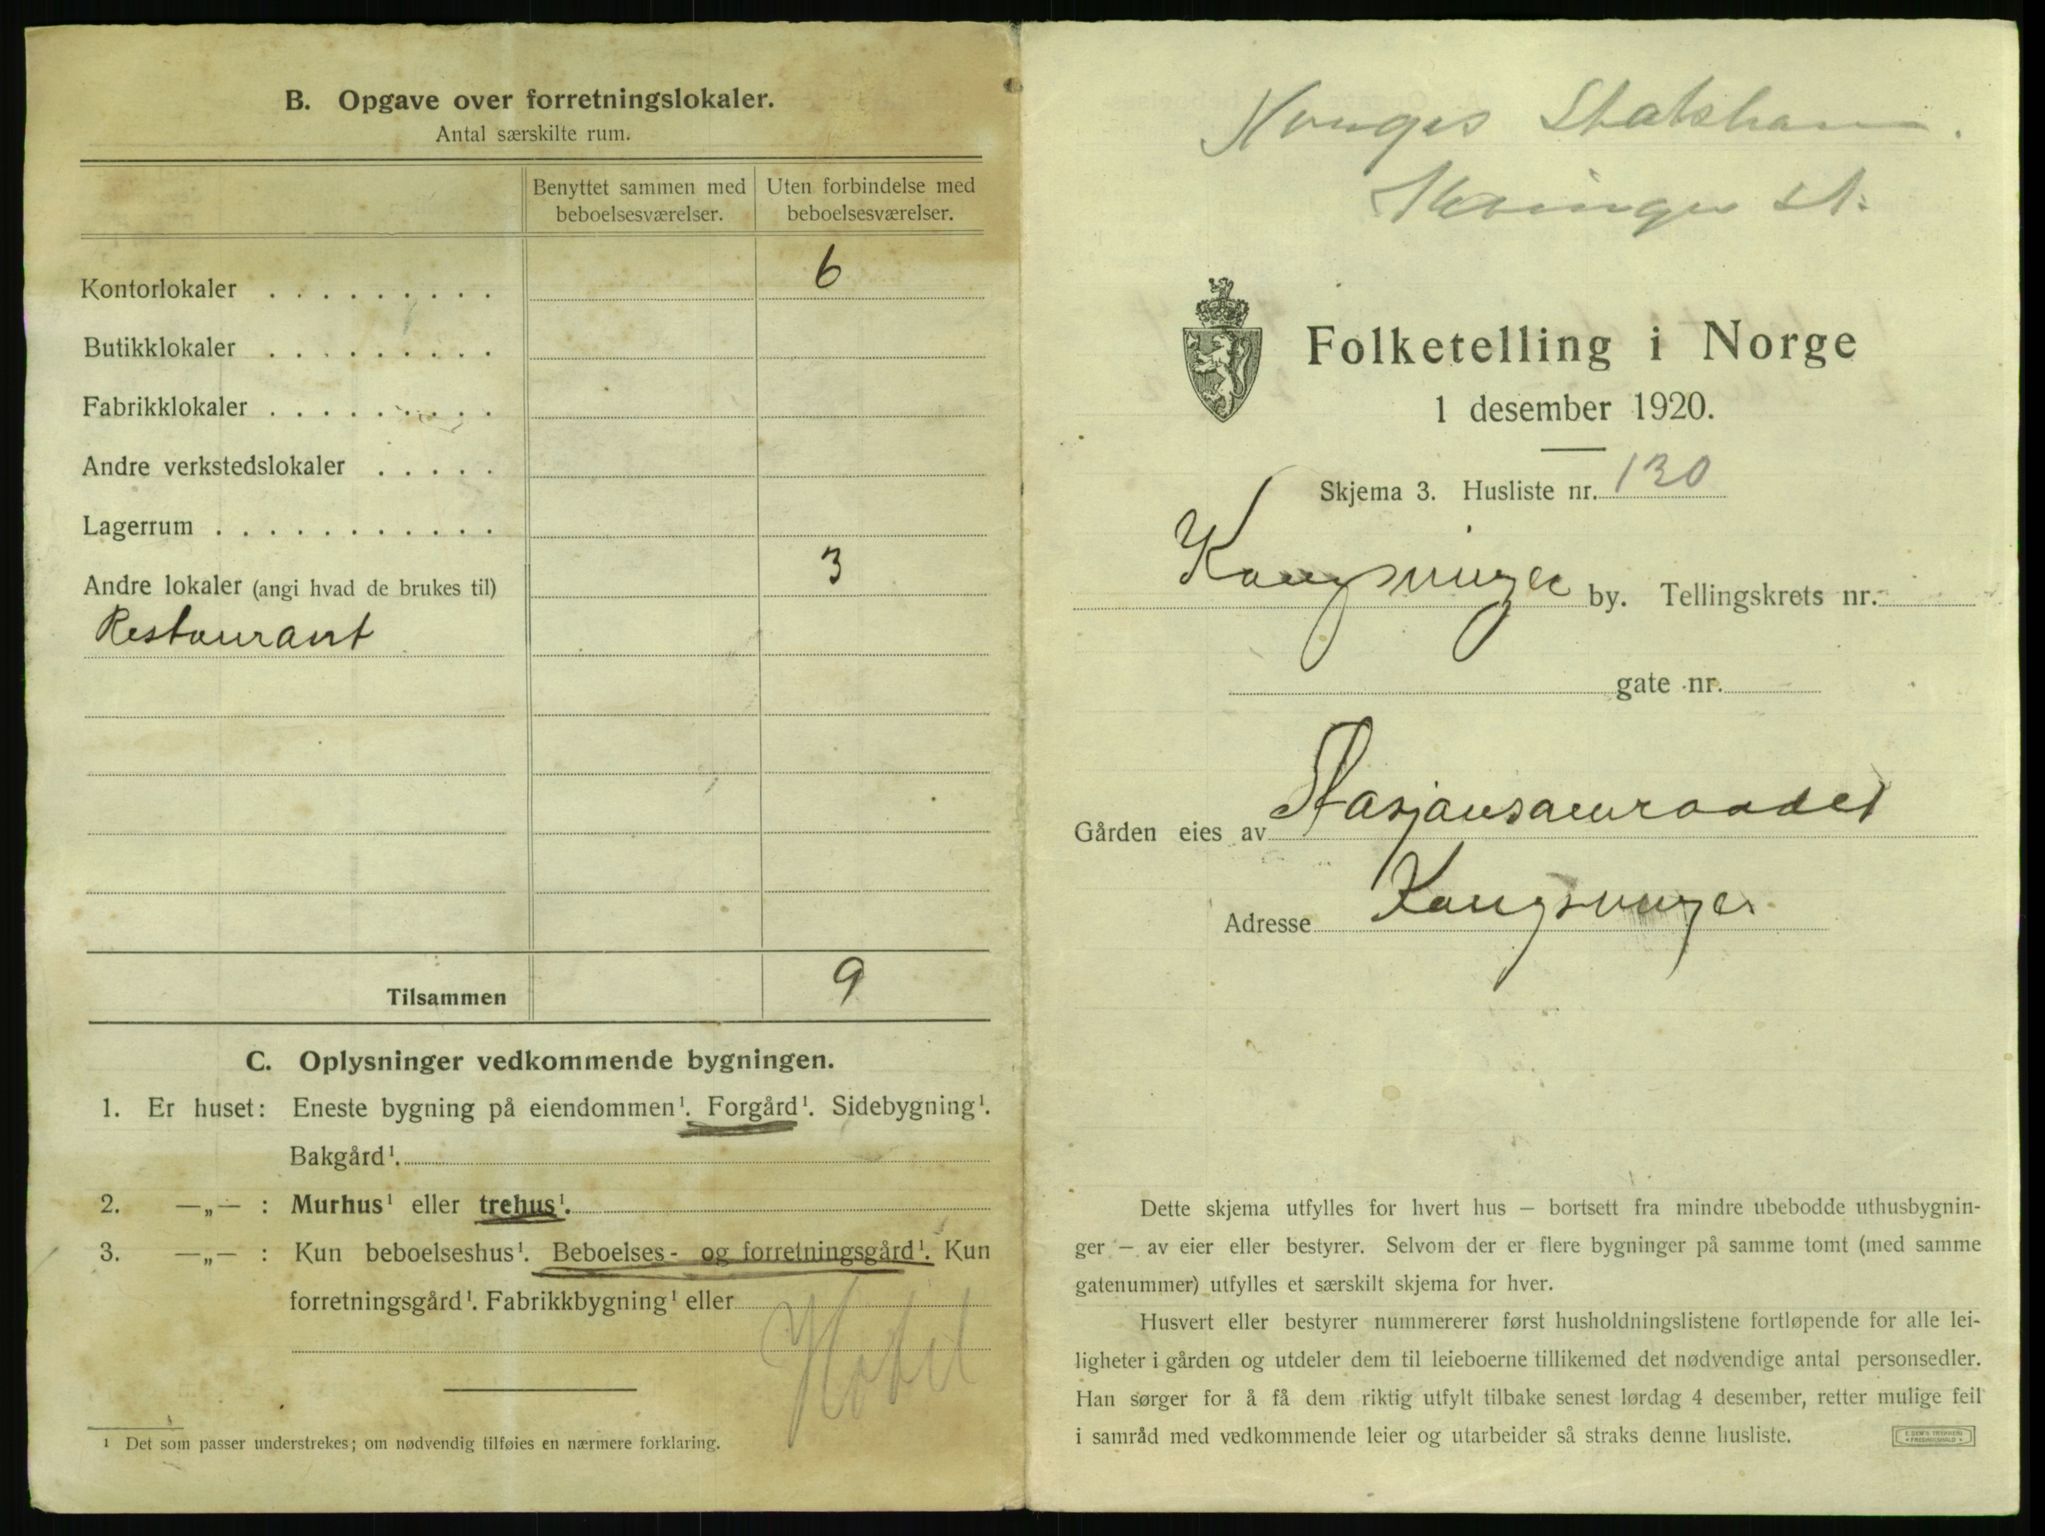 B. Opgave over forretningslokaler.
Antal særskilte rum.
Benyttet sammen med beboelsesværelser.
Uten forbindelse med beboelsesværelser.
Kontorlokaler . . . . . . . . . 6
Butikklokaler . . . . . . . . .
Fabrikklokaler . . . . . . . . .
Andre verkstedslokaler . . . . .
Lagerrum . . . . . . . . . . .
Andre lokaler (angi hvad de brukes til) 3
Restaurant
Tilsammen 9
C. Oplysninger vedkommende bygningen.
1. Er huset: Eneste bygning på eiendommen¹. Forgård¹. Sidebygning¹.
Bakgård¹.
2. —„— : Murhus¹ eller trehus¹.
3. —„— : Kun beboelseshus¹. Beboelses- og forretningsgård¹. Kun
forretningsgård¹. Fabrikkbygning¹ eller
Hotel
¹ Det som passer understrekes; om nødvendig tilføies en nærmere forklaring.
Folketelling i Norge
1 desember 1920.
Skjema 3. Husliste nr. 130
Kongsvinger by. Tellingskrets nr.
gate nr.
Gården eies av
Adresse Kongsvinger
Dette skjema utfylles for hvert hus — bortsett fra mindre ubebodde uthusbygnin-
ger — av eier eller bestyrer. Selvom der er flere bygninger på samme tomt (med samme
gatenummer) utfylles et særskilt skjema for hver.
Husvert eller bestyrer nummererer først husholdningslistene fortløpende for alle lei-
ligheter i gården og utdeler dem til leieboerne tillikemed det nødvendige antal personsedler.
Han sørger for å få dem riktig utfylt tilbake senest lørdag 4 desember, retter mulige feil
i samråd med vedkommende leier og utarbeider så straks denne husliste.